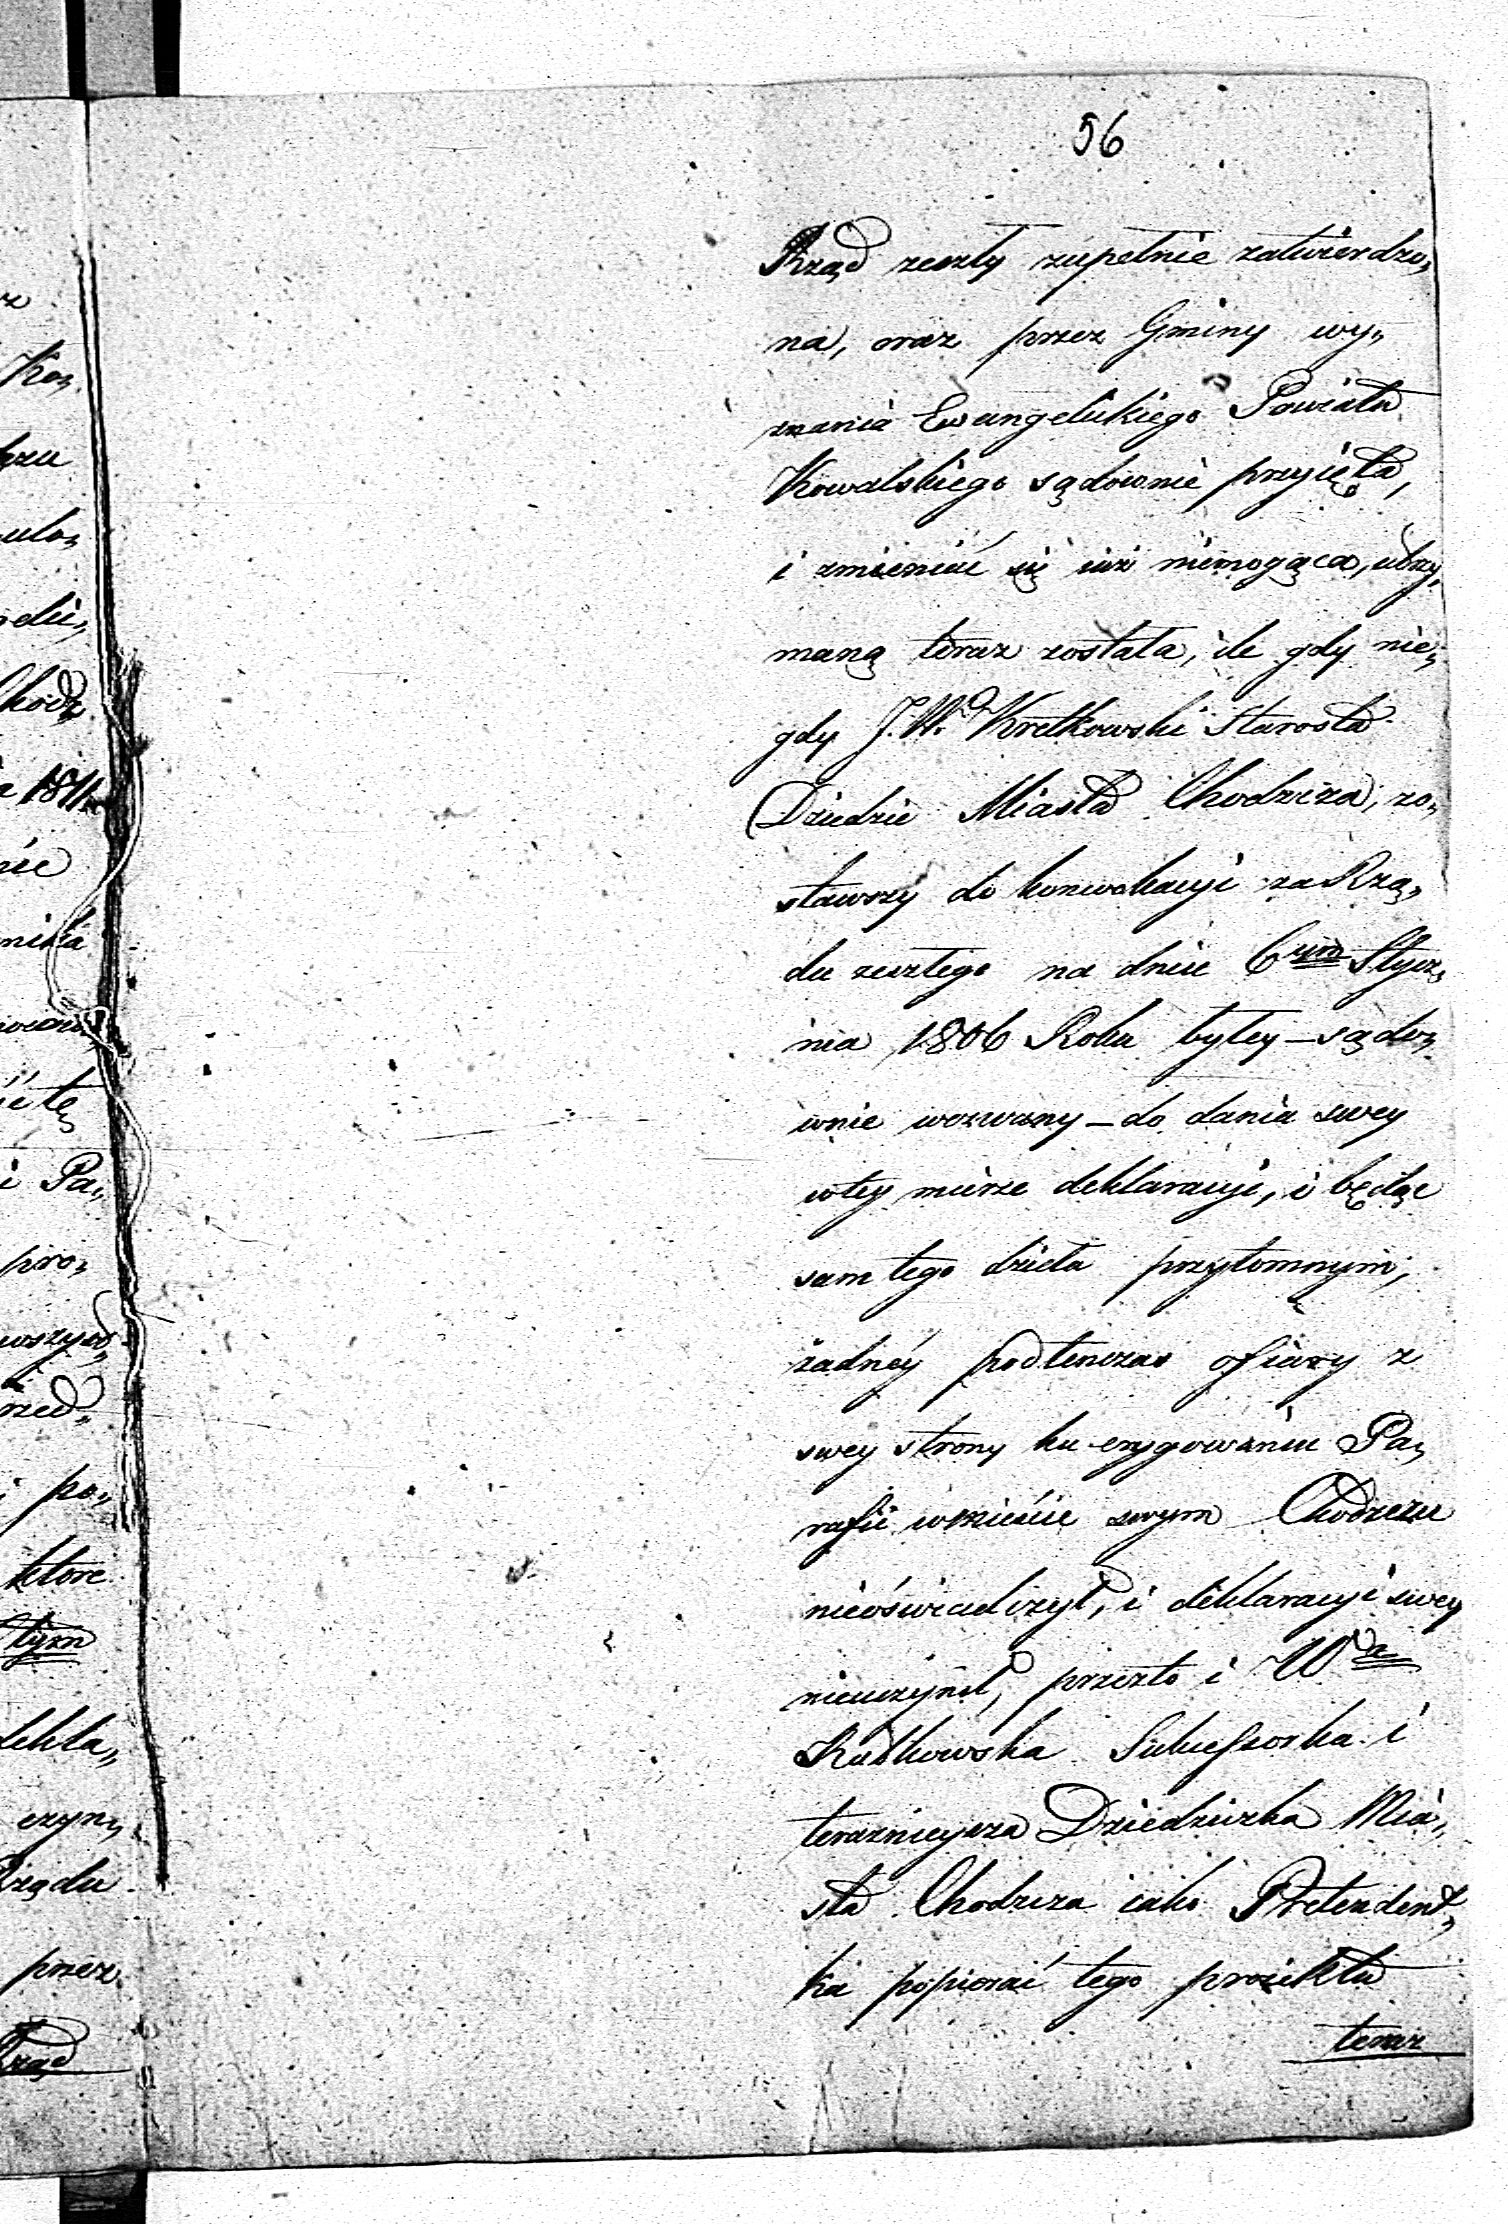 56
Rząd zeszły zupełnie zatwierdzo„
na, oraz przez Gminy wy„
znania Ewangelickiego Powiatu
Kowalskiego sądownie przyięta,
i zmieniać się iuż niemogąca, utrzy„
maną teraz została, ile gdy nie„
gdy J.W. Kretkowski Starosta
Dziedzic Miasta Chodcza, zo„
stawszy do konwokacyi za Rzą„
du zeszłego na dniu 6 Stycz„
nia 1806 Roku byłey – sądo„
wnie wezwany – do dania swey
wtey mierze deklaracyi, i będąc
sam tego dzieła przytomnym,
żadnéy podtenczas ofiary z
swey strony ku erygowaniu Pa„
rafii wmieście swym Chodczu
nieoświadczył, i deklaracyi swey
nieuczynił, przeto i W
Kretkowska Sukcessorka i
teraznieysza Dziedziczka Mia„
sta Chodcza iako Pretendent„
ka popierać tego proiektu
teraz
z
Ko„
czu
Chod„
1811
nie
nika
i Pa„
pro„
wszyst„
rzed„
i po„
które
tym
dekla„
czyn„
Rządu
przez
Rząd